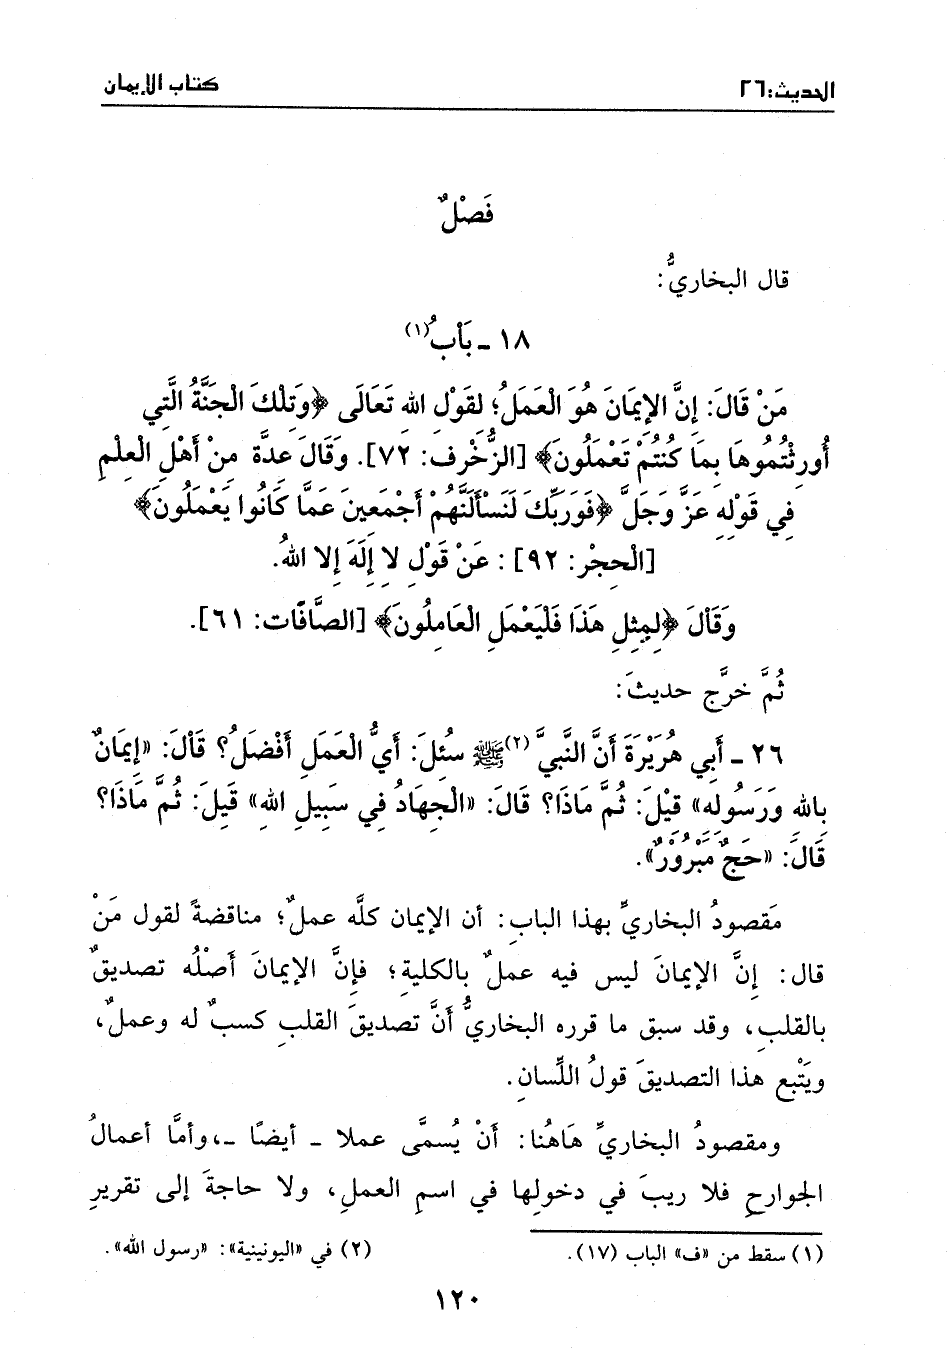 الحديث: ٢٦
كتاب الإيمان
فَصْلٌ
قال البخاريُّ:
١٨ ـ بَاْبُ(١)
مَنْ قَالَ: إِنَّ الإِيمَانَ هُوَ الْعَمَلُ؛ لِقَوْلِ اللهِ تَعَالَى ﴿وَتِلْكَ الْجَنَّةُ الَّتِي
أُورِثْتُمُوهَا بِمَا كُنْتُمْ تَعْمَلُونَ﴾ [الزُّخْرف: ٧٢]. وَقَالَ عِدَّة مِنْ أَهْلِ الْعِلْمِ
فِي قَوْلِهِ عَزَّ وَجَلَّ ﴿فَوَرَبِّكَ لَنَسْأَلَنَّهُمْ أَجْمَعِينَ عَمَّا كَانُوا يَعْمَلُونَ﴾
[الْحِجْر: ٩٢] : عَنْ قَوْلِ لا إِلَهَ إِلا اللهُ.
وَقَاْلَ ﴿لِمِثْلِ هَذَا فَلْيَعْمَلِ الْعَامِلُونَ﴾ [الصَّافَّات: ٦١].
ثُمَّ خرَّج حديثَ:
٢٦ ـ أَبِي هُرَيْرَةَ أَنَّ النَّبِيَّ(٢) ﷺ سُئِلَ: أَيُّ الْعَمَلِ أَفْضَلُ؟ قَاْلَ: «إِيمَانٌ
بِاللهِ وَرَسُولِهِ» قِيْلَ: ثُمَّ مَاذَا؟ قَالَ: «الْجِهَادُ فِي سَبِيلِ اللهِ» قِيلَ: ثُمَّ مَاْذَا؟
قَالَ: «حَجٌّ مَبْرُوْرٌ».
مَقصودُ البخاريِّ بهذا البابِ: أن الإيمان كلَّه عملٌ؛ مناقضةً لقول مَنْ
قال: إنَّ الإيمانَ ليس فيه عملٌ بالكلية؛ فإنَّ الإيمانَ أصْلُه تصديقٌ
بالقلبِ، وقد سبق ما قرره البخاريُّ أنَّ تصديقَ القلبِ كسبٌ له وعملٌ،
ويَتْبع هذا التصديقَ قولُ اللِّسانِ.
ومقصودُ البخاريِّ هَاهُنا: أَنْ يُسمَّى عملا - أيضًا -،وأمَّا أعمالُ
الجوارحِ فلا ريبَ في دخولِها في اسمِ العملِ، ولا حاجةَ إلى تقريرِ
(١) سقط من «ف» الباب (١٧).
(٢) في «اليونينية»: «رسول الله».
١٢٠